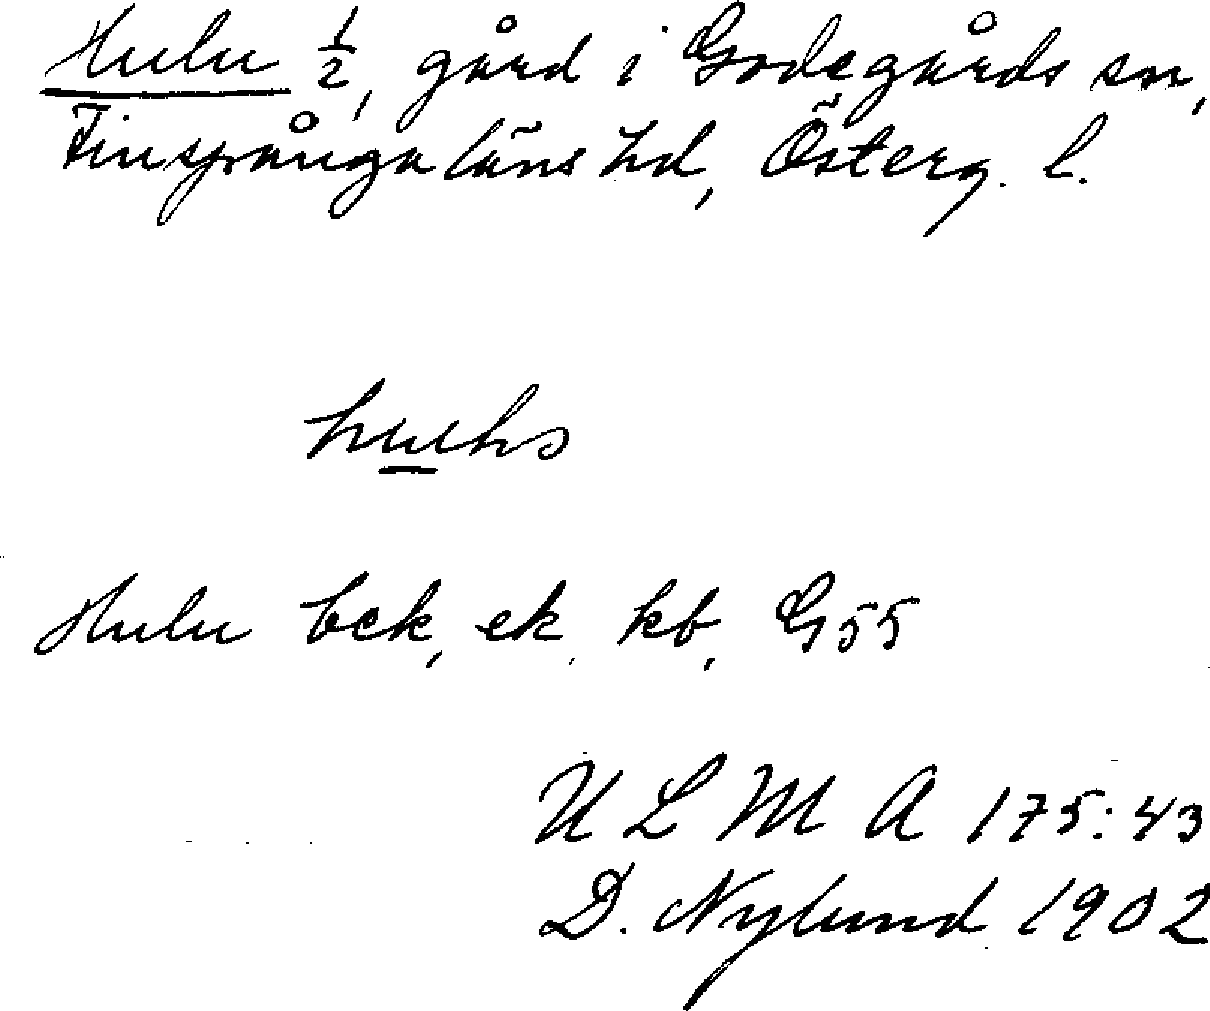 Hulu 1/2, gård i Godegårds sn,
Finspånga läns hd, Österg. l.
Hulu bck, ek, kb, G55
U L M A 175:43
D. Nylund 1902